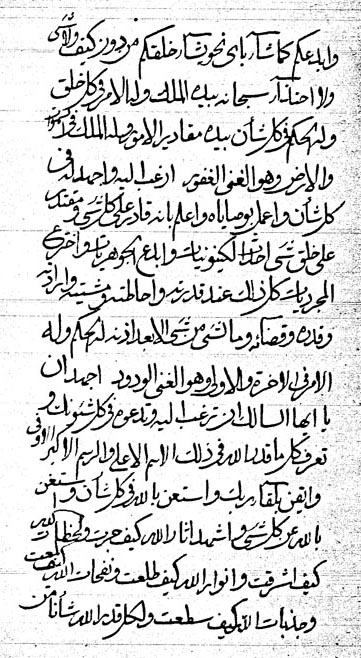 وابدعكم كما شآء باى نحو شآء خلقكم من دون كيف ولا
ولا احد لنا سبحانه بيده الملك وله الامر فى كل خلق
وله الحكم فى كل شأن بيده مقادير الامور وله الملك فى
والارض وهو الغنى الغفور ارغب اليه واجهد له فى
كل شأن واعمل بوصاياه واعلم بانه قادر على كل شئ ومقتدر
على خلق شئ الكينونيات وابدع الجوهريات واخترع
المجرديات كل ذلك عند قدرته واحاطته ومشيته وارادته
وقدره وقضائه وما شئ من شئ الا بعد اذنه له الحكم وله
الامر فى الاخرة والاولى وهو الغنى الودود اجهد ان
يا ايها السالك ان ترغب اليه وتدعوه فى كل شئونك و
تعرف كل ما قدر الله فى ذلك الاسم الاعلى والرسم الاكبر
وايقن بلقاء ربك واستعن بالله فى كل شأن واستغن
بالله عن كل شئ واشهد اثار الله كيف جرت ولحظات الله
كيف اشرقت وانوار الله كيف طلعت ونفحات الله كيف
وجذبات الله كيف سطعت ولكل قدر الله شأنا من